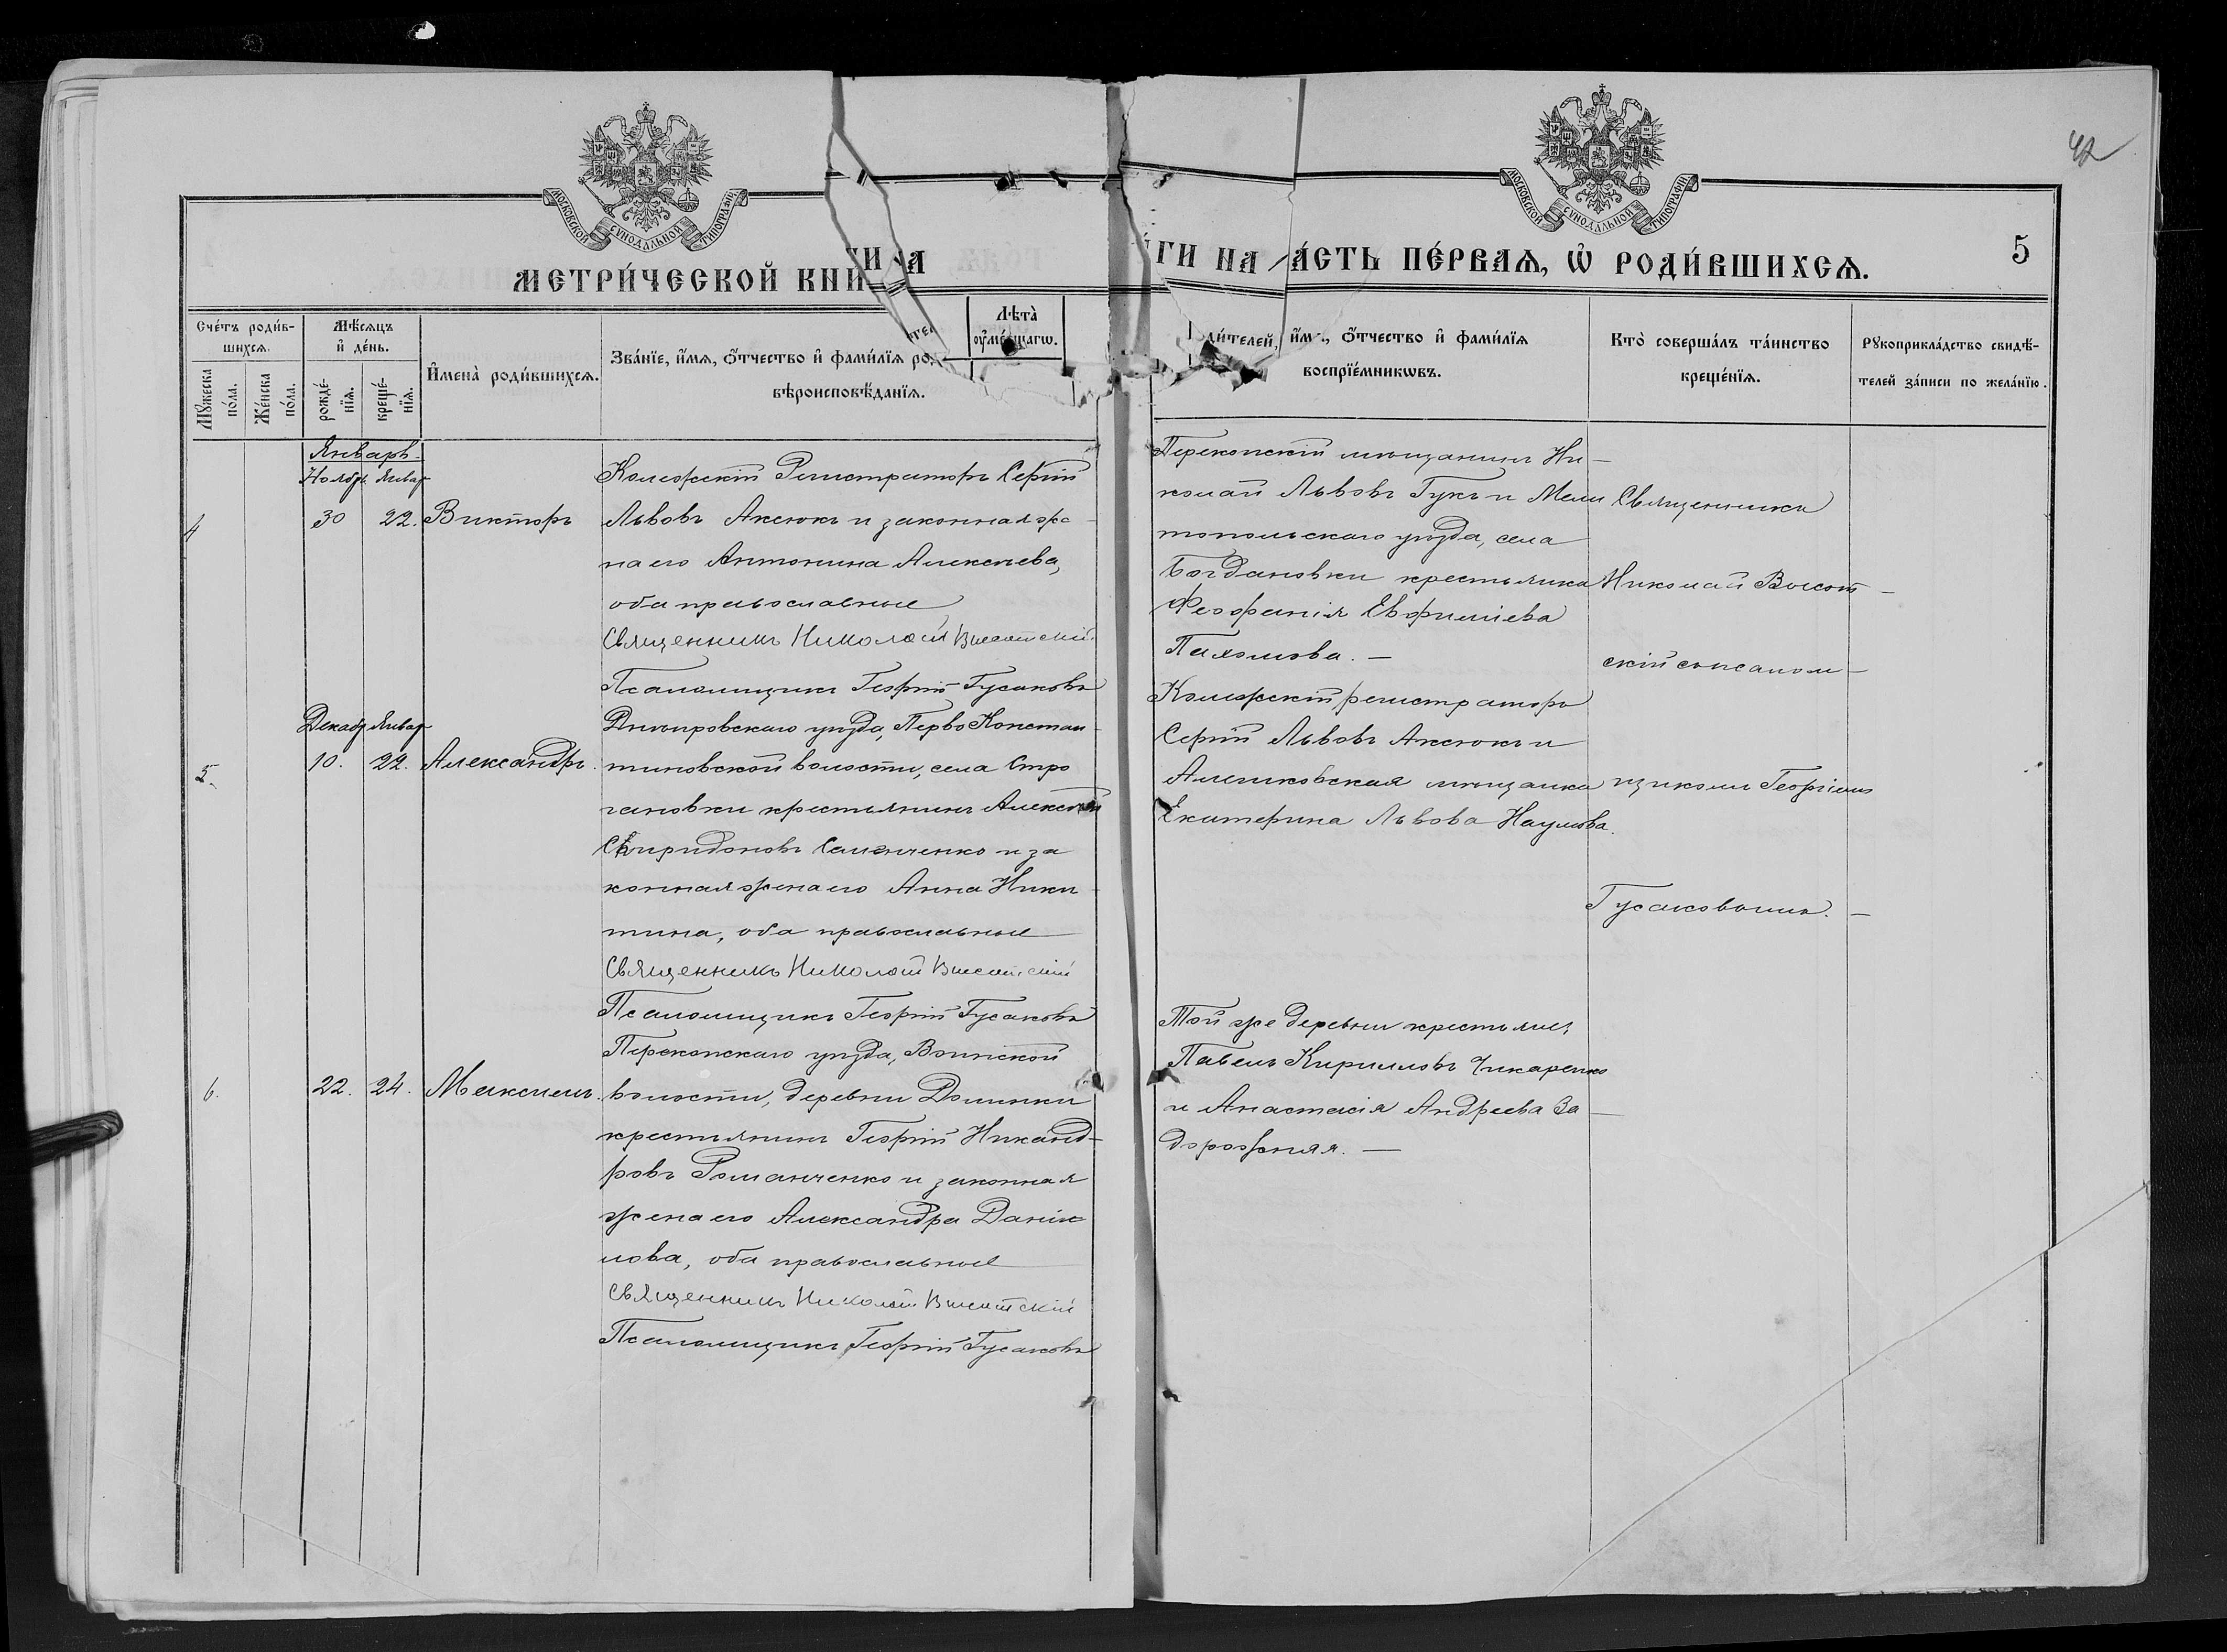 МОСКОВСКОЙ СѴНОДАЛЬНОЙ ТИПОГРАФІИ.
МОСКОВСКОЙ СѴНОДАЛЬНОЙ ТИПОГРАФІИ.
42
МЕТРИ́ЧЕСКОЙ КНИ
ГИ НА
А́СТЬ ПЕ́РВАѦ, Ѿ РОДИ́ВШИХСѦ.
5
Сче́тъ роди́в-
шихсѧ.
Мꙋ́жеска
по́ла.
Же́нска
по́ла.
Мѣ́сѧцъ
и҆ де́нь.
рожде́-
нїѧ.
креще́-
нїѧ.
И҆мена̀ роди́вшихсѧ.
Зва́нїе, и҆́мѧ, ѻ҆́тчество и҆ фами́лїѧ ро
вѣроисповѣ́данїѧ.
Лѣ́та̀
ли́телей, и҆́м , ѻ҆́тчество и҆ фами́лїѧ
воспрїе́мникѡвъ.
Кто̀ соверша́лъ та́инство
креще́нїѧ.
Рꙋкоприкла́дство свидѣ́-
телей за́писи по жела́нїю.
Январь.
Ноябр. Январ
4 30 22. Викторъ
Коллежскій Регистраторъ Сергій
Львовъ Аксюкъ и законная же-
на его Антонина Алексѣева,
оба православные
Священникъ Николай Высотскій
Псаломщикъ Георгій Гусаковъ
Перекопскій мѣщанинъ Ни-
колай Львовъ Гукъ и Мели
топольскаго уѣзда, села
Богдановки крестьянка
Феофанія Евфиміева
Пахомова. —
Декабр Январ
5. 10. 22. Александръ.
Днѣпровскаго уѣзда, Перво Констан-
тиновской волости, села Стро
гановки крестьянинъ Алексѣй
Спиридоновъ Семенченко и за
конная жена его Анна Ники-
тина, оба православные
Священникъ Николай Высотскій
Псаломщикъ Георгій Гусаковъ
Коллежскій регистраторъ
Сергій Львовъ Аксюкъ и
Алешковская мѣщанка
Екатерина Львова Наумова.
6. 22. 24. Максимъ.
Перекопскаго уѣзда, Воинской
волости, деревни Долинки
крестьянинъ Георгій Никанд-
ровъ Романченко и законная
жена его Александра Дани
лова, оба православные
Священникъ Николай Высотскій
Псаломщикъ Георгій Гусаковъ
Той же деревни крестьян.
Павелъ Кирилловъ Чикаренко
и Анастасія Андреева За-
дорожняя. —
Священника
Николай Высот-
скій съ псалом-
щикомъ Георгіемъ
Гусаковымъ. —